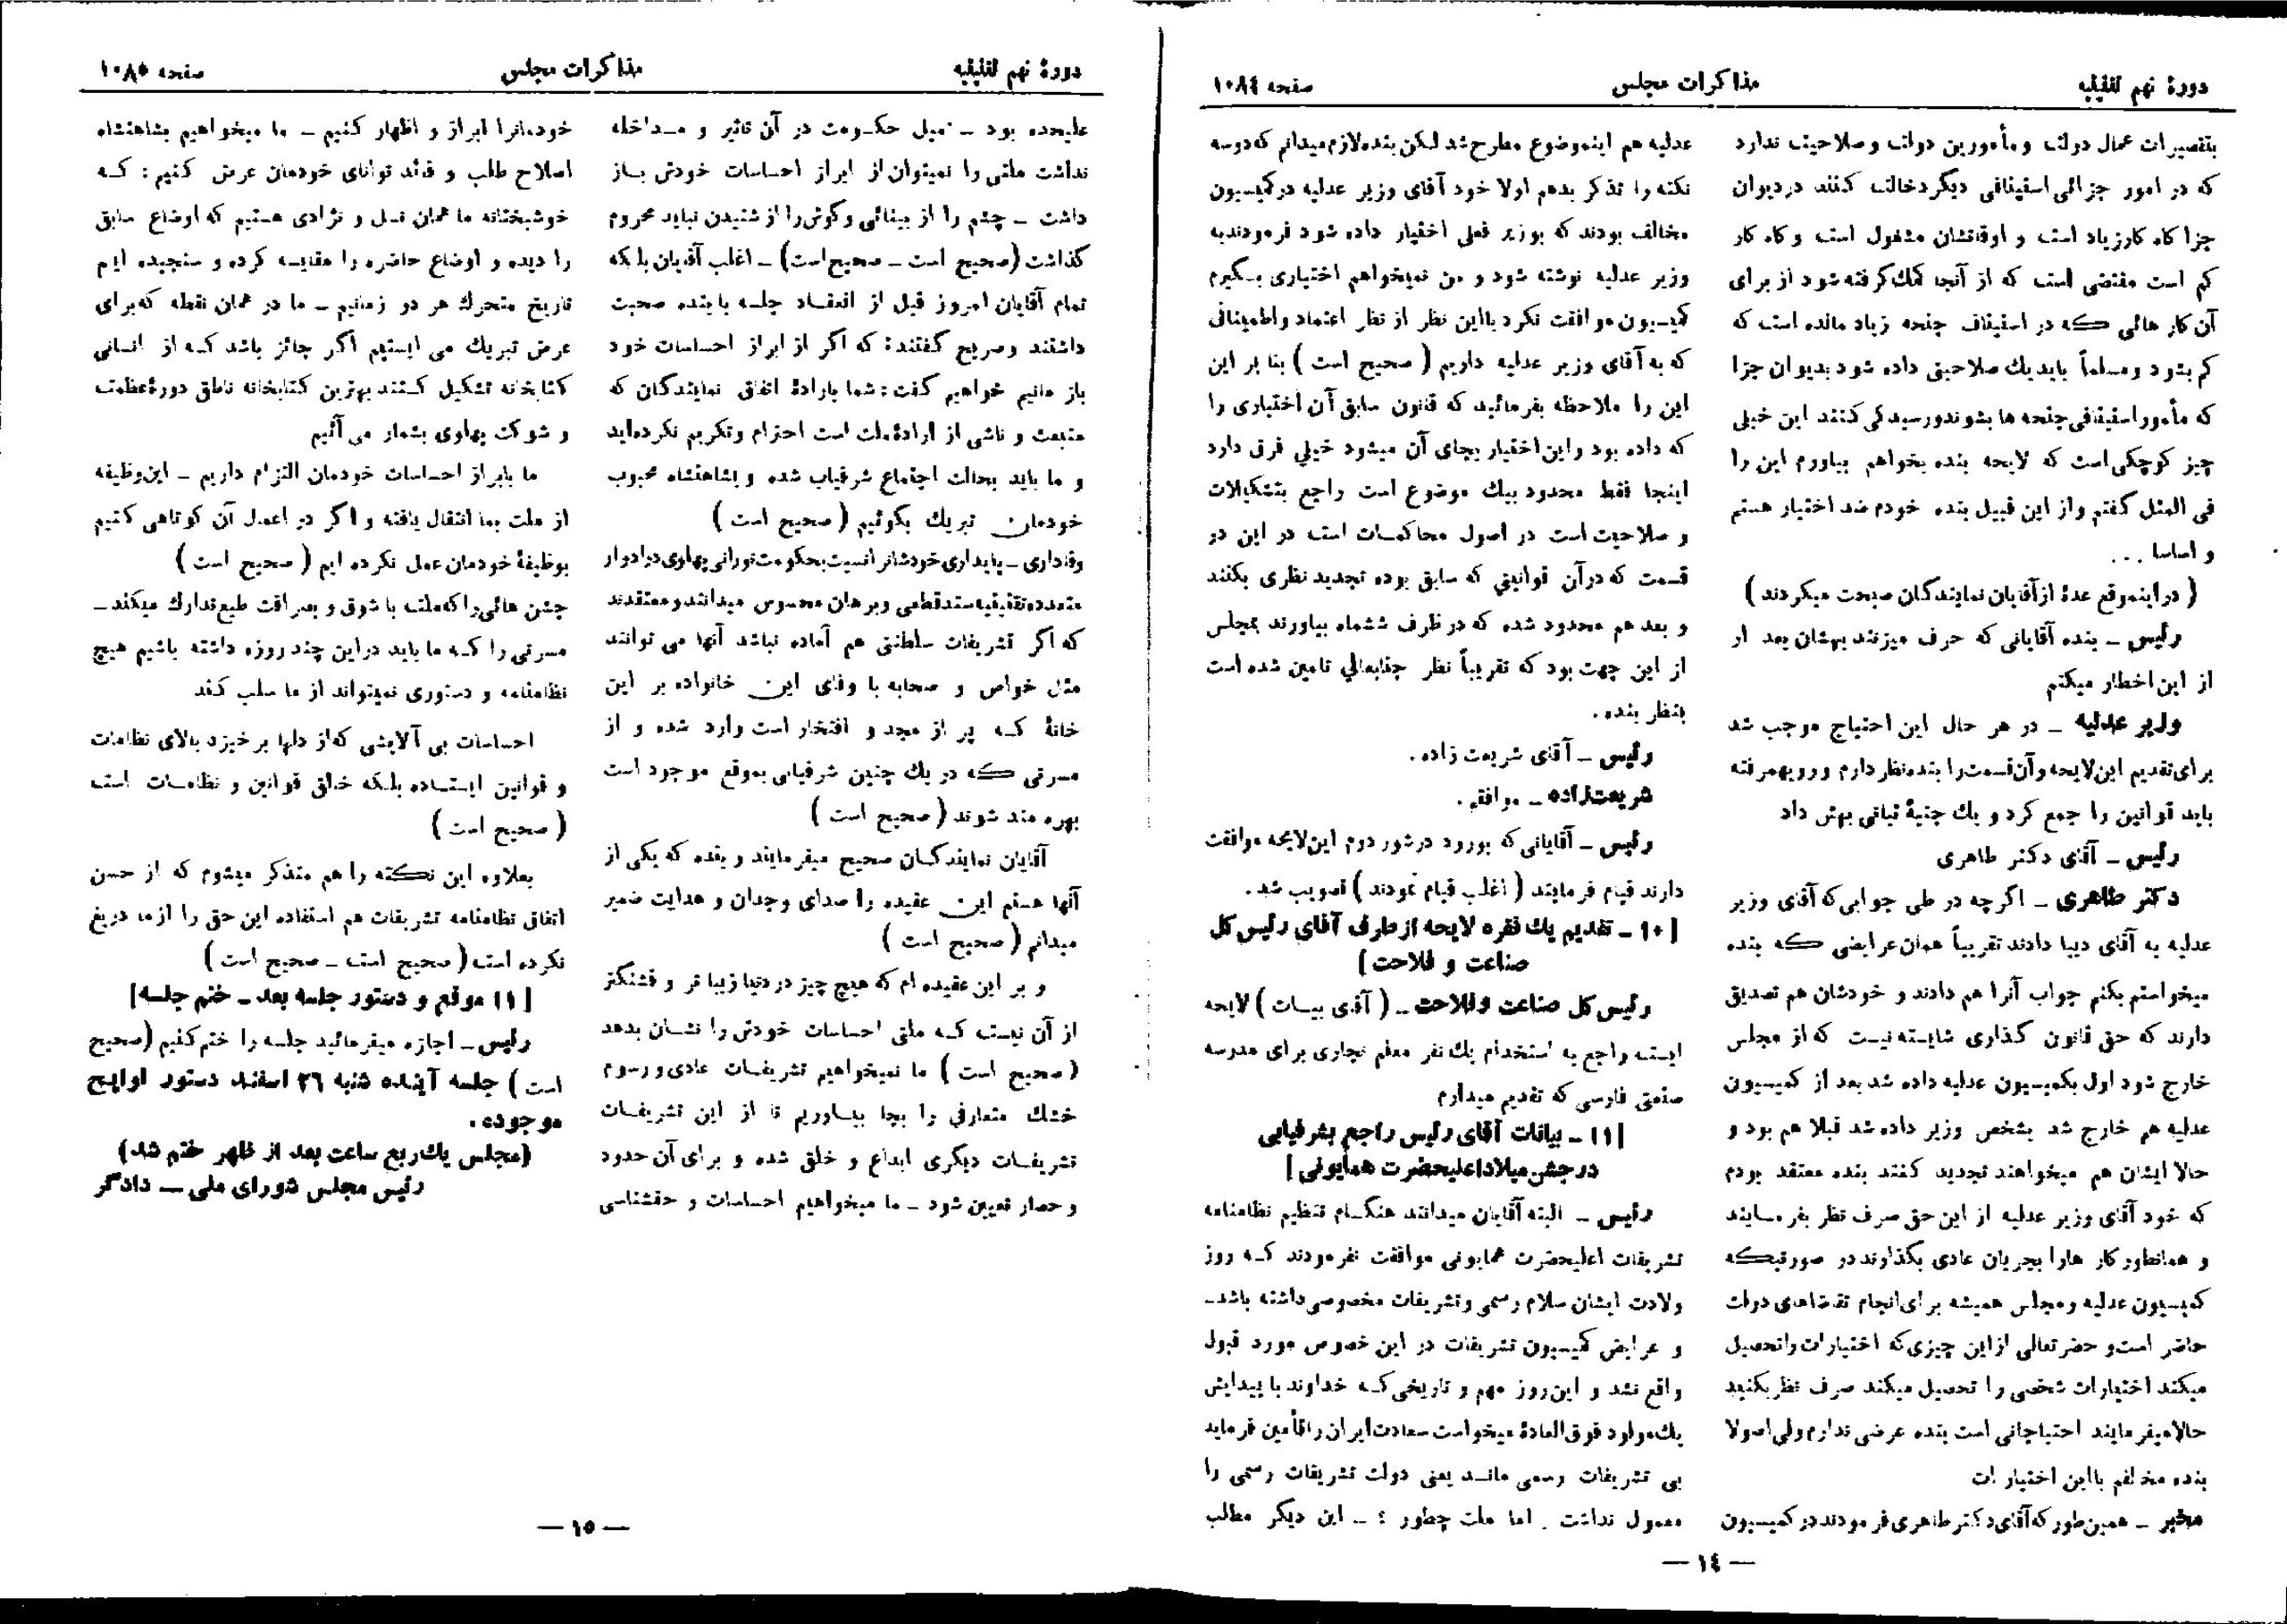 دورهٔ نهم تقنینیه
مذاکرات مجلس
صفحه ۱۰۸٤
بتقصیرات عمال دولت و مأمورین دولت و صلاحیت ندارد
که در امور جزائی استینافی دیگر دخالت کنند در دیوان
جزا گاه کار زیاد است و اوقاتشان مشغول است و گاه کار
کم است مقتضی است که از آنجا کمک گرفته شود از برای
آن کار هائی که در استیناف جنحه زیاد مانده است که
کم بشود و مسلماً باید یك صلاحیتی داده شود بدیوان جزا
که مأمور استینافی جنحه ها بشوند و رسیدگی کنند این خیلی
چیز کوچکی است که لایحه بنده بخواهم بیاورم این را
فی المثل گفتم و از این قبیل بنده خودم ضد اختیار هستم
و اساسا ...
( در اینموقع عدهٔ از آقایان نمایندگان صحبت میکردند )
رئیس ـ بنده آقایانی که حرف میزنند بهشان بعد از
از این اخطار میکنم
وزیر عدلیه ـ در هر حال این احتیاج موجب شد
برای تقدیم این لایحه و آن قسمت را بنده نظر دارم و رویهمرفته
باید قوانین را جمع کرد و یك جنبهٔ ثباتی بهش داد
رئیس ـ آقای دکتر طاهری
دکتر طاهری ـ اگرچه در طی جوابی که آقای وزیر
عدلیه به آقای دیبا دادند تقریباً همان عرایضی که بنده
میخواستم بکنم جواب آنرا هم دادند و خودشان هم تصدیق
دارند که حق قانون گذاری شایسته نیست که از مجلس
خارج شود اول بکمیسیون عدلیه داده شد بعد از کمیسیون
عدلیه هم خارج شد بشخص وزیر داده شد قبلا هم بود و
حالا ایشان هم میخواهند تجدید کنند بنده معتقد بودم
که خود آقای وزیر عدلیه از این حق صرف نظر بفرمایند
و همانطور کار هارا بجریان عادی بگذارند در صورتیکه
کمیسیون عدلیه و مجلس همیشه برای انجام تقاضاهای دولت
حاضر است و حضرتعالی از این چیزی که اختیارات را تحصیل
میکند اختیارات شخصی را تحصیل میکند صرف نظر بکنید
حالا میفرمایند احتیاجاتی است بنده عرضی ندارم ولی اصولا
بنده مخالفم با این اختیارات
مخبر ـ همین طور که آقای دکتر طاهری فرمودند در کمیسیون
عدلیه هم اینموضوع مطرح شد لکن بنده لازم میدانم که دو سه
نکته را تذکر بدهم اولا خود آقای وزیر عدلیه در کمیسیون
مخالف بودند که بوزیر فعلی اختیار داده شود فرمودند به
وزیر عدلیه نوشته شود و من نمیخواهم اختیاری بگیرم
کمیسیون موافقت نکرد با این نظر از نظر اعتماد و اطمینانی
که به آقای وزیر عدلیه داریم ( صحیح است ) بنا بر این
این را ملاحظه بفرمائید که قانون سابق آن اختیاری را
که داده بود و این اختیار بجای آن میشود خیلی فرق دارد
اینجا فقط محدود بیك موضوع است راجع بتشکیلات
و صلاحیت است در اصول محاکمات است در این دو
قسمت که در آن قوانینی که سابق بوده تجدید نظری بکنند
و بعد هم محدود شده که در ظرف ششماه بیاورند بمجلس
از این جهت بود که تقریباً نظر جنابعالی تامین شده است
بنظر بنده .
رئیس ـ آقای شریعت زاده .
شریعت‌زاده ـ موافقم .
رئیس ـ آقایانی که بورود در شور دوم این لایحه موافقت
دارند قیام فرمایند ( اغلب قیام نمودند ) تصویب شد .
[ ۱۰ ـ تقدیم یك فقره لایحه از طرف آقای رئیس کل
صناعت و فلاحت ]
رئیس کل صناعت و فلاحت ـ ( آقای بیات ) لایحه
ایست راجع به استخدام یك نفر معلم نجاری برای مدرسه
صنعتی فارسی که تقدیم میدارم
[ ۱۱ ـ بیانات آقای رئیس راجع بشرفیابی
در جشن میلاد اعلیحضرت همایونی ]
رئیس ـ البته آقایان میدانند هنگام تنظیم نظامنامه
تشریفات اعلیحضرت همایونی موافقت نفرمودند که روز
ولادت ایشان سلام رسمی و تشریفات مخصوصی داشته باشد ـ
و عرایض کمیسیون تشریفات در این خصوص مورد قبول
واقع نشد و این روز مهم و تاریخی که خداوند با پیدایش
یك مولود فوق العادهٔ میخواست سعادت ایران را تأمین فرماید
بی تشریفات رسمی ماند یعنی دولت تشریفات رسمی را
معمول نداشت . اما ملت چطور ؟ ـ این دیگر مطلب
— ۱٤ —
دورهٔ نهم تقنینیه
مذاکرات مجلس
صفحه ۱۰۸۵
علیحده بود ـ میل حکومت در آن تاثیر و مداخله
نداشت ملتی را نمیتوان از ابراز احساسات خودش باز
داشت ـ چشم را از بینائی و گوش را از شنیدن نباید محروم
گذاشت (صحیح است ـ صحیح است) ـ اغلب آقایان بلکه
تمام آقایان امروز قبل از انعقاد جلسه با بنده صحبت
داشتند و صریح گفتند : که اگر از ابراز احساسات خود
باز مانیم خواهیم گفت : شما بارادهٔ اتفاق نمایندگان که
منبعث و ناشی از ارادهٔ ملت است احترام و تکریم نکرده‌اید
و ما باید بحالت اجتماع شرفیاب شده و بشاهنشاه محبوب
خودمان تبریك بگوئیم ( صحیح است )
وفاداری ـ پایداری خودشانرا نسبت بحکومت نورانی پهلوی در ادوار
متعدده تقنینیه سند قطعی و برهان محسوس میدانند و معتقدند
که اگر تشریفات سلطنتی هم آماده نباشد آنها می توانند
مثل خواص و صحابه با وفای این خانواده بر این
خانهٔ که پر از مجد و افتخار است وارد شده و از
مسرتی که در یك چنین شرفیابی بموقع موجود است
بهره مند شوند ( صحیح است )
آقایان نمایندگان صحیح میفرمایند و بنده که یکی از
آنها هستم این عقیده را صدای وجدان و هدایت ضمیر
میدانم ( صحیح است )
و بر این عقیده ام که هیچ چیز در دنیا زیبا تر و قشنگتر
از آن نیست که ملتی احساسات خودش را نشان بدهد
( صحیح است ) ما نمیخواهیم تشریفات عادی و رسوم
خشك متعارفی را بجا بیاوریم تا از این تشریفات
تشریفات دیگری ابداع و خلق شده و برای آن حدود
و حصار تعیین شود ـ ما میخواهیم احساسات و حقشناسی
خودمانرا ابراز و اظهار کنیم ـ ما میخواهیم بشاهنشاه
اصلاح طلب و قائد توانای خودمان عرض کنیم : که
خوشبختانه ما همان نسل و نژادی هستیم که اوضاع سابق
را دیده و اوضاع حاضره را مقایسه کرده و سنجیده ایم
تاریخ متحرك هر دو زمانیم ـ ما در همان نقطه که برای
عرض تبریك می ایستیم اگر جائز باشد که از انسانی
کتابخانه تشکیل کنند بهترین کتابخانه ناطق دورهٔ عظمت
و شوکت پهلوی بشمار می آئیم
ما بابراز احساسات خودمان التزام داریم ـ این وظیفه
از ملت بما انتقال یافته و اگر در اعمال آن کوتاهی کنیم
بوظیفهٔ خودمان عمل نکرده ایم ( صحیح است )
جشن هائی را که ملت با شوق و بصرافت طبع تدارك میکند ـ
مسرتی را که ما باید در این چند روزه داشته باشیم هیچ
نظامنامه و دستوری نمیتواند از ما سلب کند
احساسات بی آلایشی که از دلها بر خیزد بالای نظامات
و قوانین ایستاده بلکه خالق قوانین و نظامات است
( صحیح است )
بعلاوه این نکته را هم متذکر میشوم که از حسن
اتفاق نظامنامه تشریفات هم استفاده این حق را از ما دریغ
نکرده است ( صحیح است ـ صحیح است )
[ ۱۱ موقع و دستور جلسه بعد ـ ختم جلسه ]
رئیس ـ اجازه میفرمائید جلسه را ختم کنیم (صحیح
است ) جلسه آینده شنبه ۲٦ اسفند دستور لوایح
موجوده .
(مجلس یك ربع ساعت بعد از ظهر ختم شد)
رئیس مجلس شورای ملی ـ دادگر
— ۱۵ —